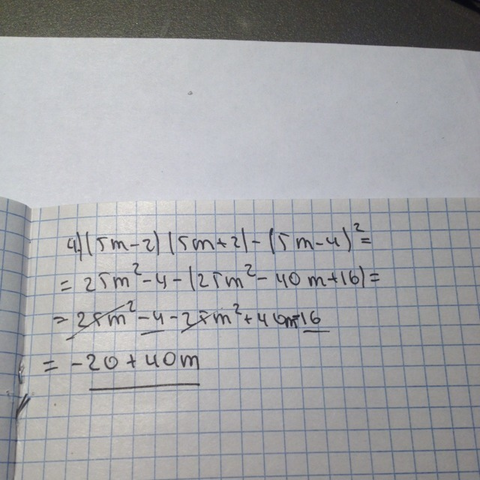 4) (5m-2) (5m+2) - (5m-4)²=
= 25m²-4-(25m²-40m+16)=
= 25m²-4-25m²+40m-16
= -20+40m